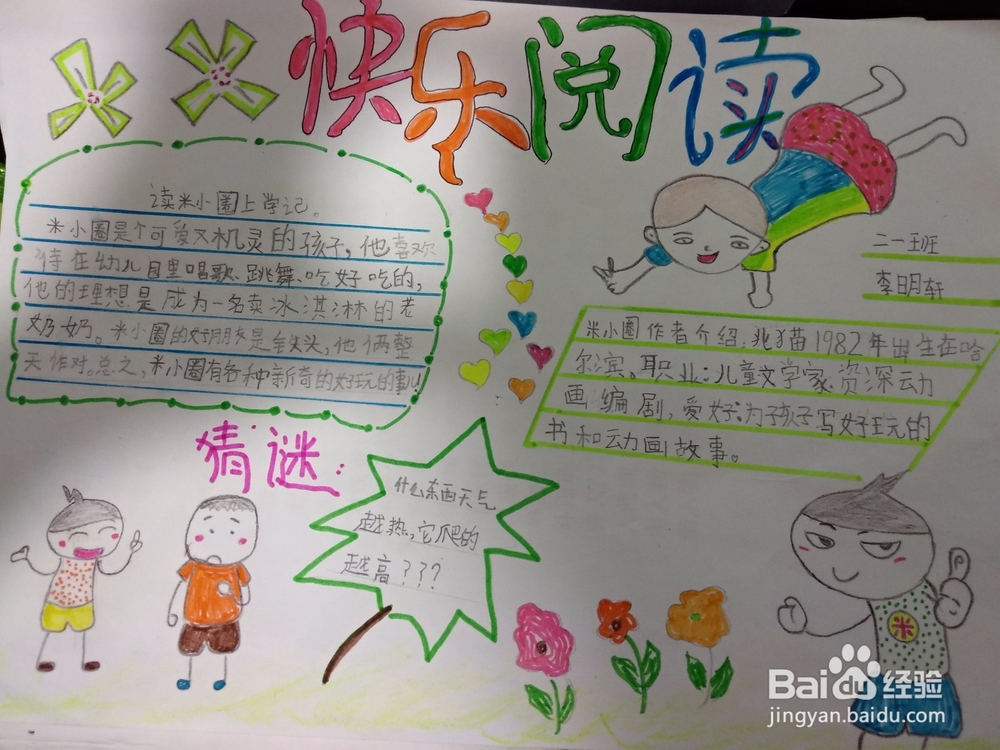 快乐阅读
读米小圈上学记。
米小圈是个可爱又机灵的孩子,他喜欢
待在幼儿园里唱歌、跳舞、吃好吃的,
他的理想是成为一名卖冰淇淋的老
奶奶。米小圈的好朋友是铁头,他俩整
天作对。总之,米小圈有各种新奇的好玩的事儿!
二一班
李明轩
米小圈作者介绍:北猫1982年出生在哈
尔滨。职业:儿童文学家、资深动
画编剧,爱好:为孩子写好玩的
书和动画故事。
猜谜:
什么东西天气
越热,它爬的
越高???
米
Baidu经验
jingyan.baidu.com